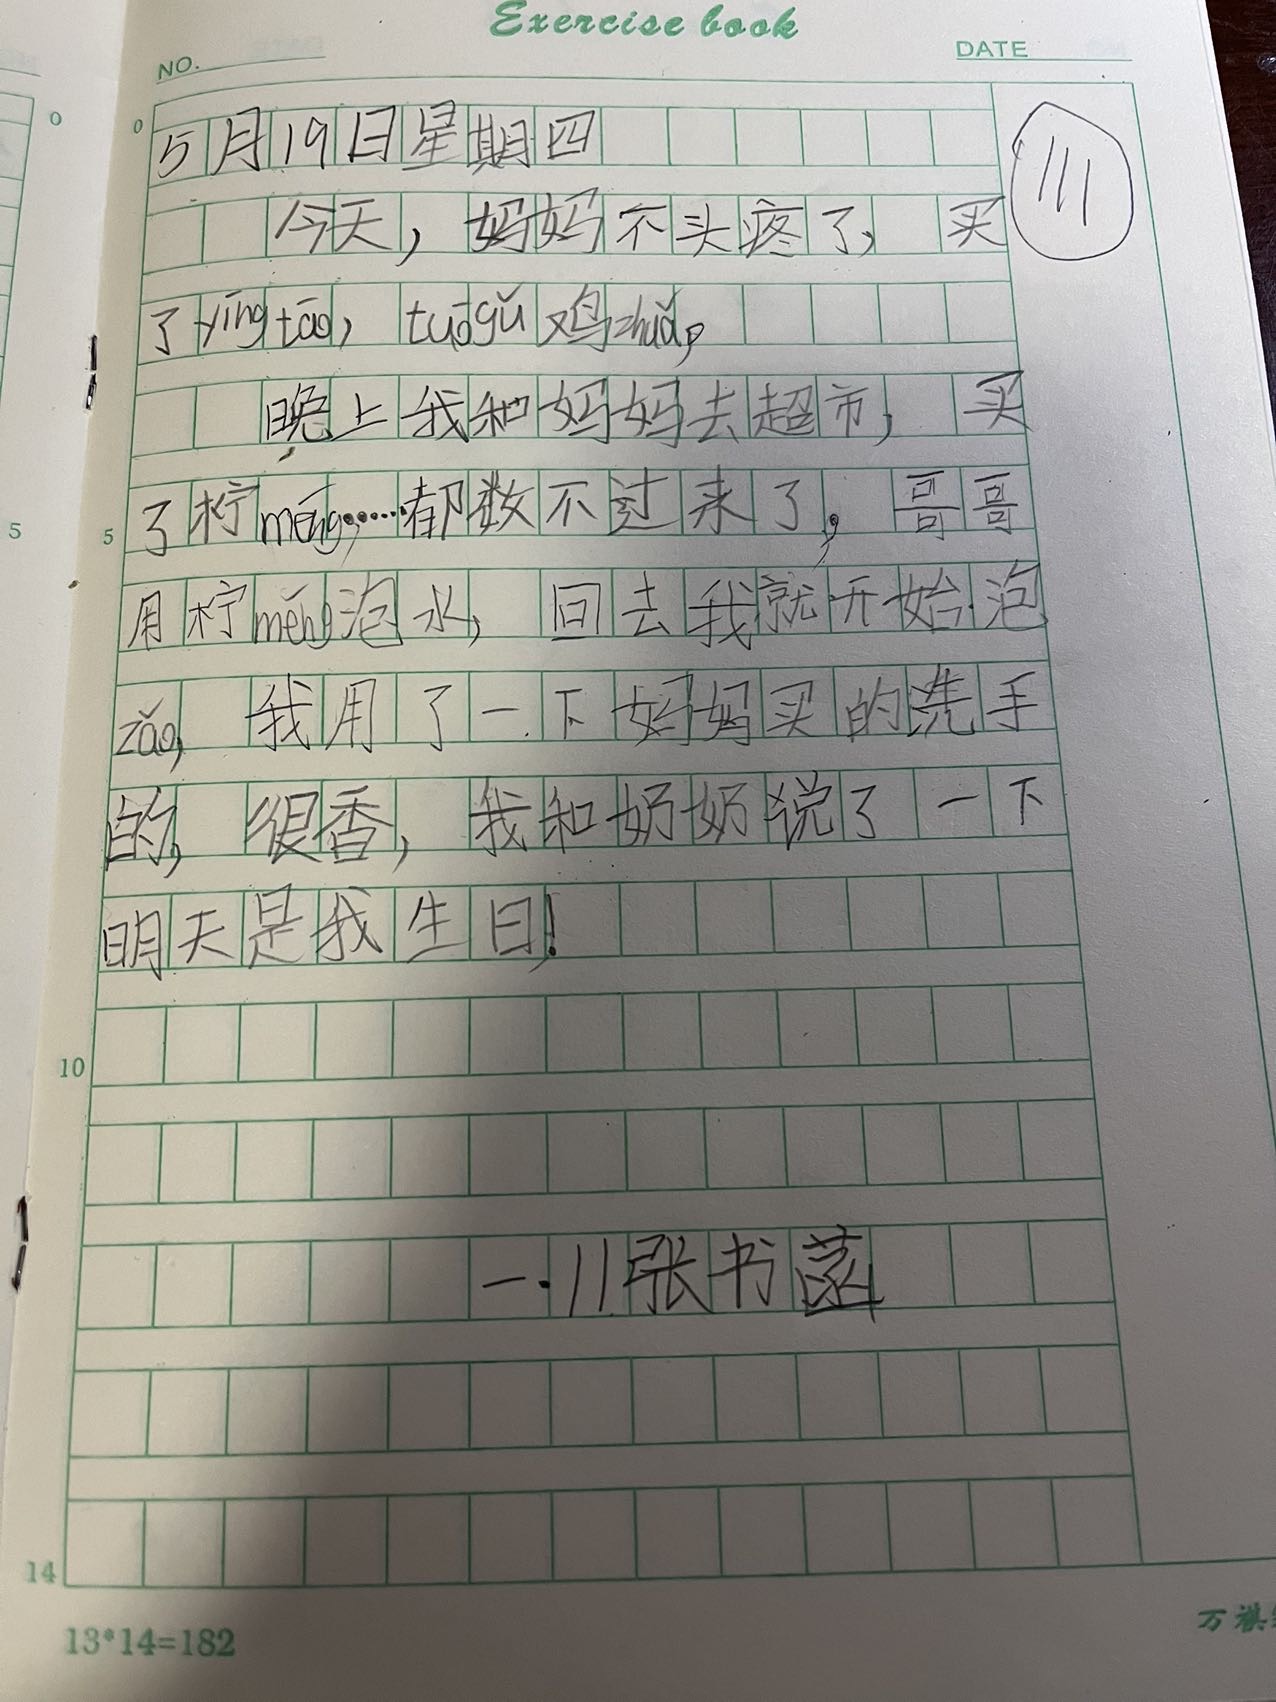 Exercise book
NO.
DATE
0
0
5月19日星期四
111
今天，妈妈不头疼了，买
了yīngtāo，tuōgǔ鸡zhuǎ。
晚上我和妈妈去超市，买
5
5
了柠méng……都数不过来了，哥哥
用柠měng泡水，回去我就开始泡
zǎo，我用了一下妈妈买的洗手
的，很香，我和奶奶说了一下
明天是我生日！
10
一.11张书菡
14
13*14=182
万祺